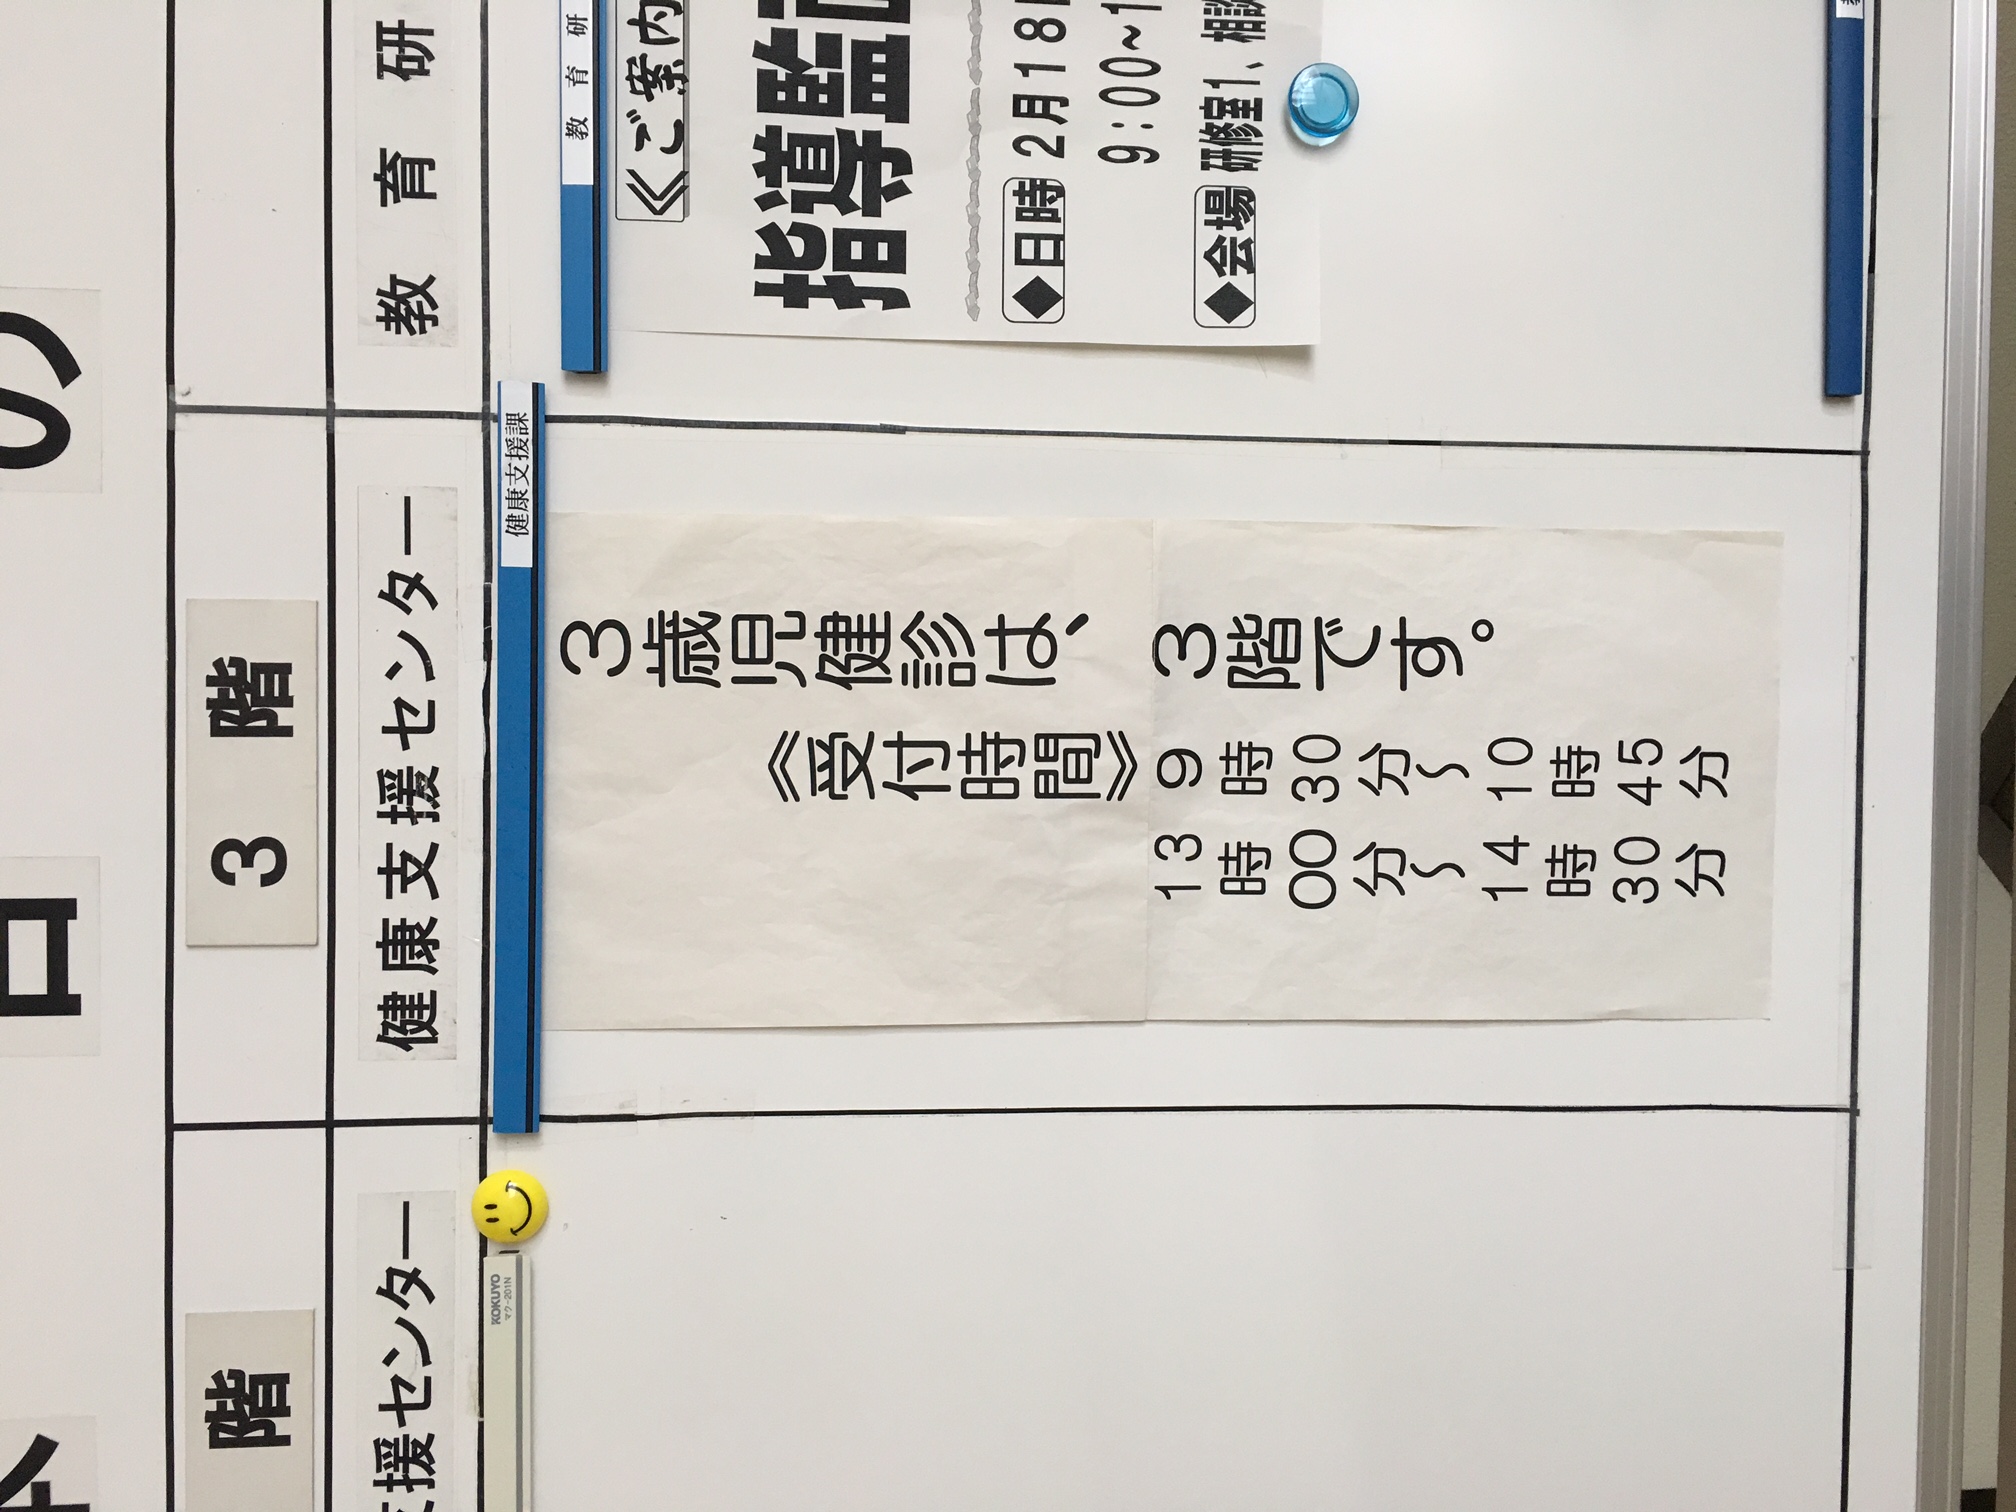 の
日
3 階
階
教 育 研
健康支援センター
援センター
教 育 研
健康支援課
KOKUYO
マク-201N
3歳児健診は、3階です。
《受付時間》9時30分～10時45分
13時00分～14時30分
《ご案内
指導監
◆日時 2月18
9:00~1
◆会場 研修室1、相談